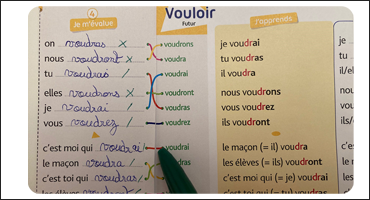 4
Je m'évalue
Vouloir
Futur
J'apprends
on voudras x voudrons
nous voudront x voudra
tu voudras / voudrai
elles voudrons x voudront
je voudrai / voudras
vous voudrez / voudrez
c'est moi qui voudrai / voudrai
le maçon voudra / dras
c'est toi qui voudras /
les élèves
je voudrai
tu voudras
il voudra
nous voudrons
vous voudrez
ils voudront
le maçon (= il) voudra
les élèves (= ils) voudront
c'est moi qui (= je) voudrai
c'est toi qui (= tu) voudras
je
tu
il/el
nous
vous
ils/
le m
les
c'es
c'es